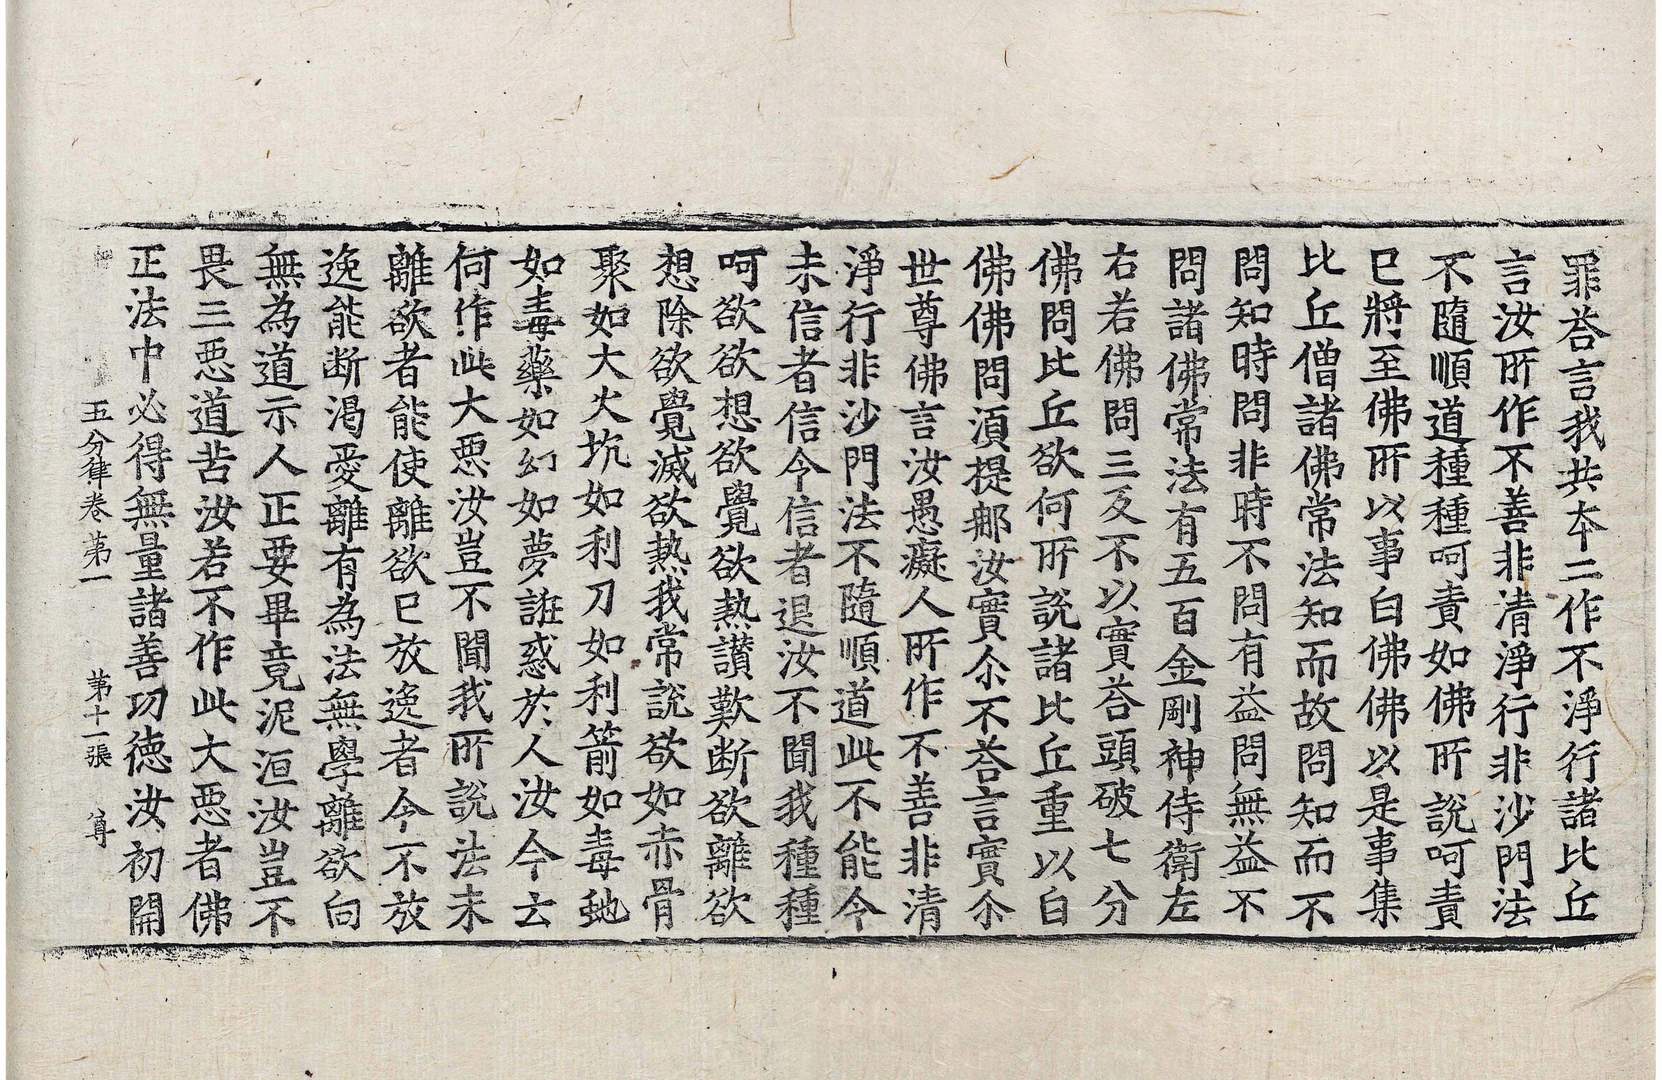 罪荅言我共本二作不淨行諸比丘
言汝所作不善非清淨行非沙門法
不隨順道種種呵責如佛所說呵責
已將至佛所以事白佛佛以是事集
比丘僧諸佛常法知而故問知而不
問知時問非時不問有益問無益不
問諸佛常法有五百金剛神侍衛左
右若佛問三反不以實荅頭破七分
佛問比丘欲何所說諸比丘重以白
佛佛問湏提那汝實尒不荅言實尒
世尊佛言汝愚癡人所作不善非清
淨行非沙門法不隨順道此不能令
未信者信令信者退汝不聞我種種
呵欲欲想欲覺欲熱讃歎断欲離欲
想除欲覺滅欲熱我常說欲如赤骨
聚如大火坑如利刀如利箭如毒虵
如毒藥如幻如夢誑惑於人汝今云
何作此大惡汝豈不聞我所說法未
離欲者能使離欲已放逸者令不放
逸能断渴愛離有為法無學離欲向
無為道示人正要畢竟泥洹汝豈不
畏三惡道苦汝若不作此大惡者佛
正法中必得無量諸善功德汝初開
五分律卷第一 第十一張 尊